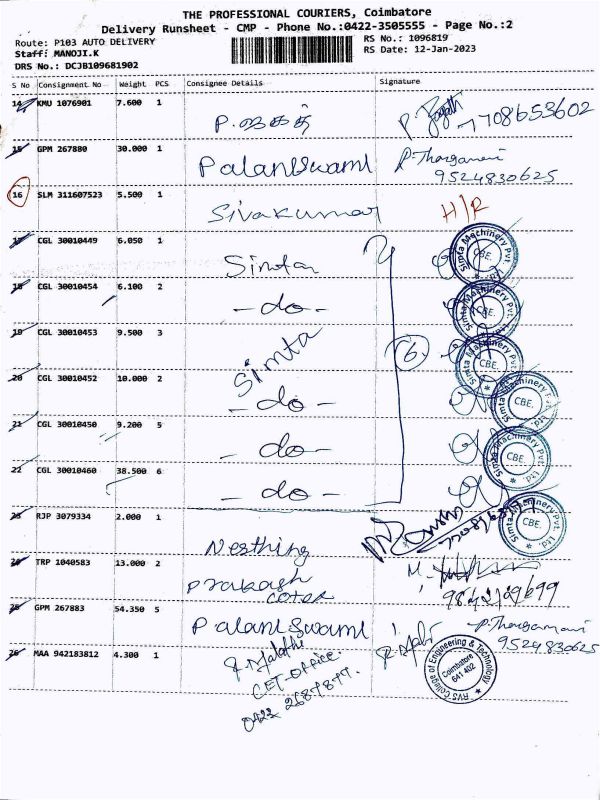 THE PROFESSIONAL COURIERS, Coimbatore
Delivery Runsheet - CMP - Phone No.:0422-3505555 - Page No.:2
Route: P103 AUTO DELIVERY RS No.: 1096819
Staff: MANOJI.K RS Date: 12-Jan-2023
DRS No.: DCJB109681902
S No Consignment No Weight PCS Consignee Details Signature
14 KMU 1076901 7.600 1 P. ஜெகத் 7708653602
15 GPM 267880 30.000 1 PalaniSwami P. Thangamani
9524830625
16 SLM 311607523 5.500 1 Sivakumar H/R
17 CGL 30010449 6.050 1 Simta
18 CGL 30010454 6.100 2 - do -
19 CGL 30010453 9.500 3 Simta 6
20 CGL 30010452 10.000 2 - do -
21 CGL 30010450 9.200 5 - do -
22 CGL 30010460 38.500 6 - do -
Simta Machinery Pvt. Ltd. CBE.
Simta Machinery Pvt. Ltd. CBE.
Simta Machinery Pvt. Ltd. CBE.
Simta Machinery Pvt. Ltd. CBE.
Simta Machinery Pvt. Ltd. CBE.
Simta Machinery Pvt. Ltd. CBE.
23 RJP 3079334 2.000 1
24 TRP 1040583 13.000 2 Prakash
25 GPM 267883 54.350 5 PalaniSwami P. Thangamani
9524830625
26 MAA 942183812 4.300 1 Malathi
CET-Office.
0422 2687877.
RVS College of Engineering & Technology
Coimbatore
641 402